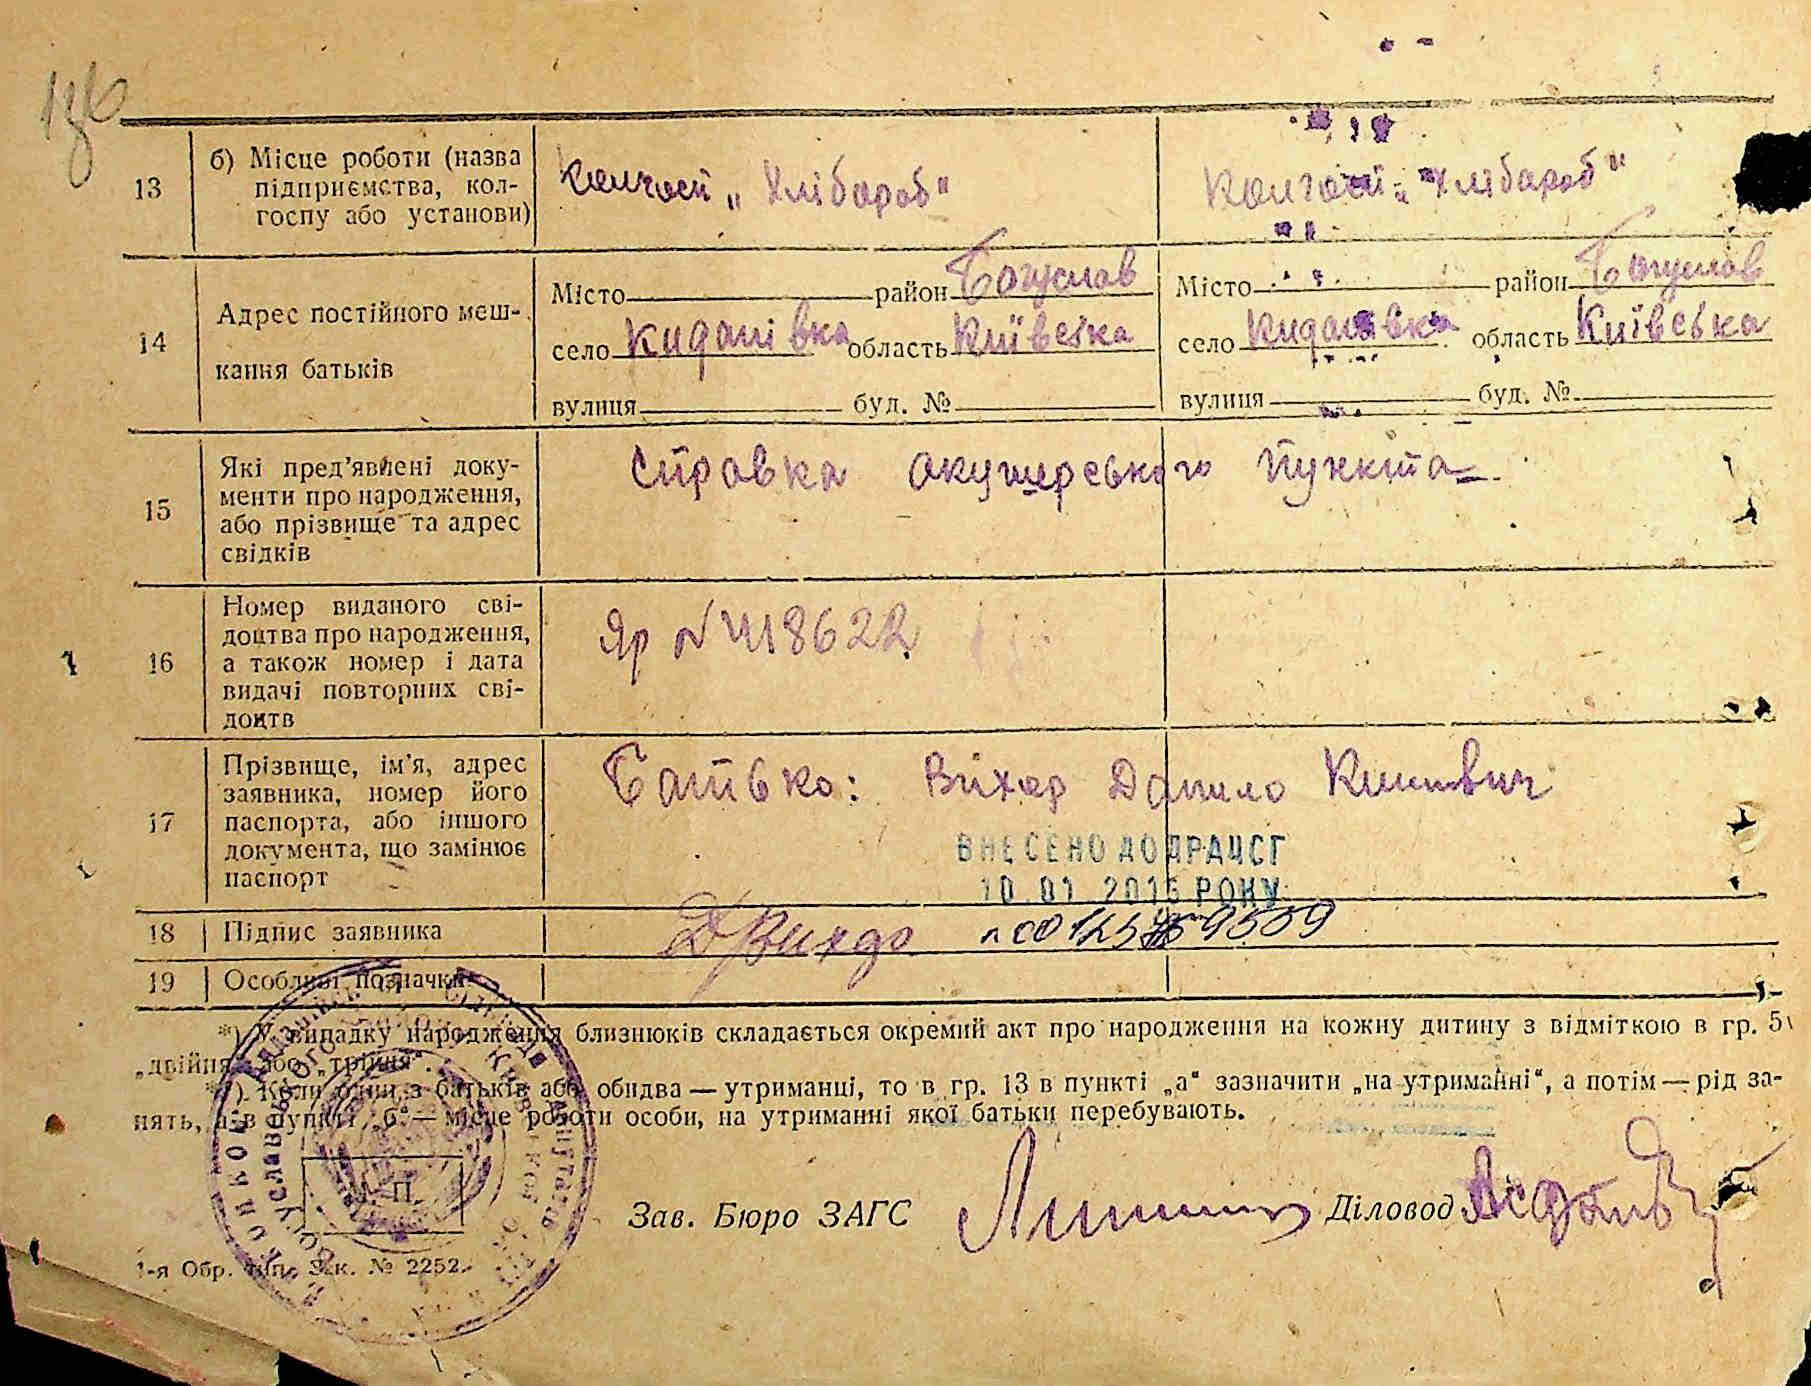 136
13 б) Місце роботи (назва підприємства, кол-госпу або установи) Колгосп „Хлібороб" Колгосп „Хлібороб"
14 Адрес постійного меш-кання батьків
Місто район Богуслав Місто район Богуслав
село Киданівка область Київська село Киданівка область Київська
вулиця буд. № вулиця буд. №
15 Які пред'явлені доку-менти про народження, або прізвище та адрес свідків Справка акушерського пункта
16 Номер виданого сві-доцтва про народження, а також номер і дата видачі повторних сві-доцтв Яр № 418622
17 Прізвище, ім'я, адрес заявника, номер його паспорта, або іншого документа, що замінює паспорт Батько: Вихор Данило
ВНЕСЕНО ДО ДРАЦСГ
10 01 2015 РОКУ
18 Підпис заявника
19 Особливі позначки
*) У випадку народження близнюків складається окремий акт про народження на кожну дитину з відміткою в гр. 5
„двійня" або „трійня".
**) Коли один з батьків або обидва — утриманці, то в гр. 13 в пункті „а" зазначити „на утриманні", а потім — рід за-
нять, а в пункті „б" — місце роботи особи, на утриманні якої батьки перебувають.
М. П.
Зав. Бюро ЗАГС Діловод
1-я Обр. тип. Зак. № 2252.